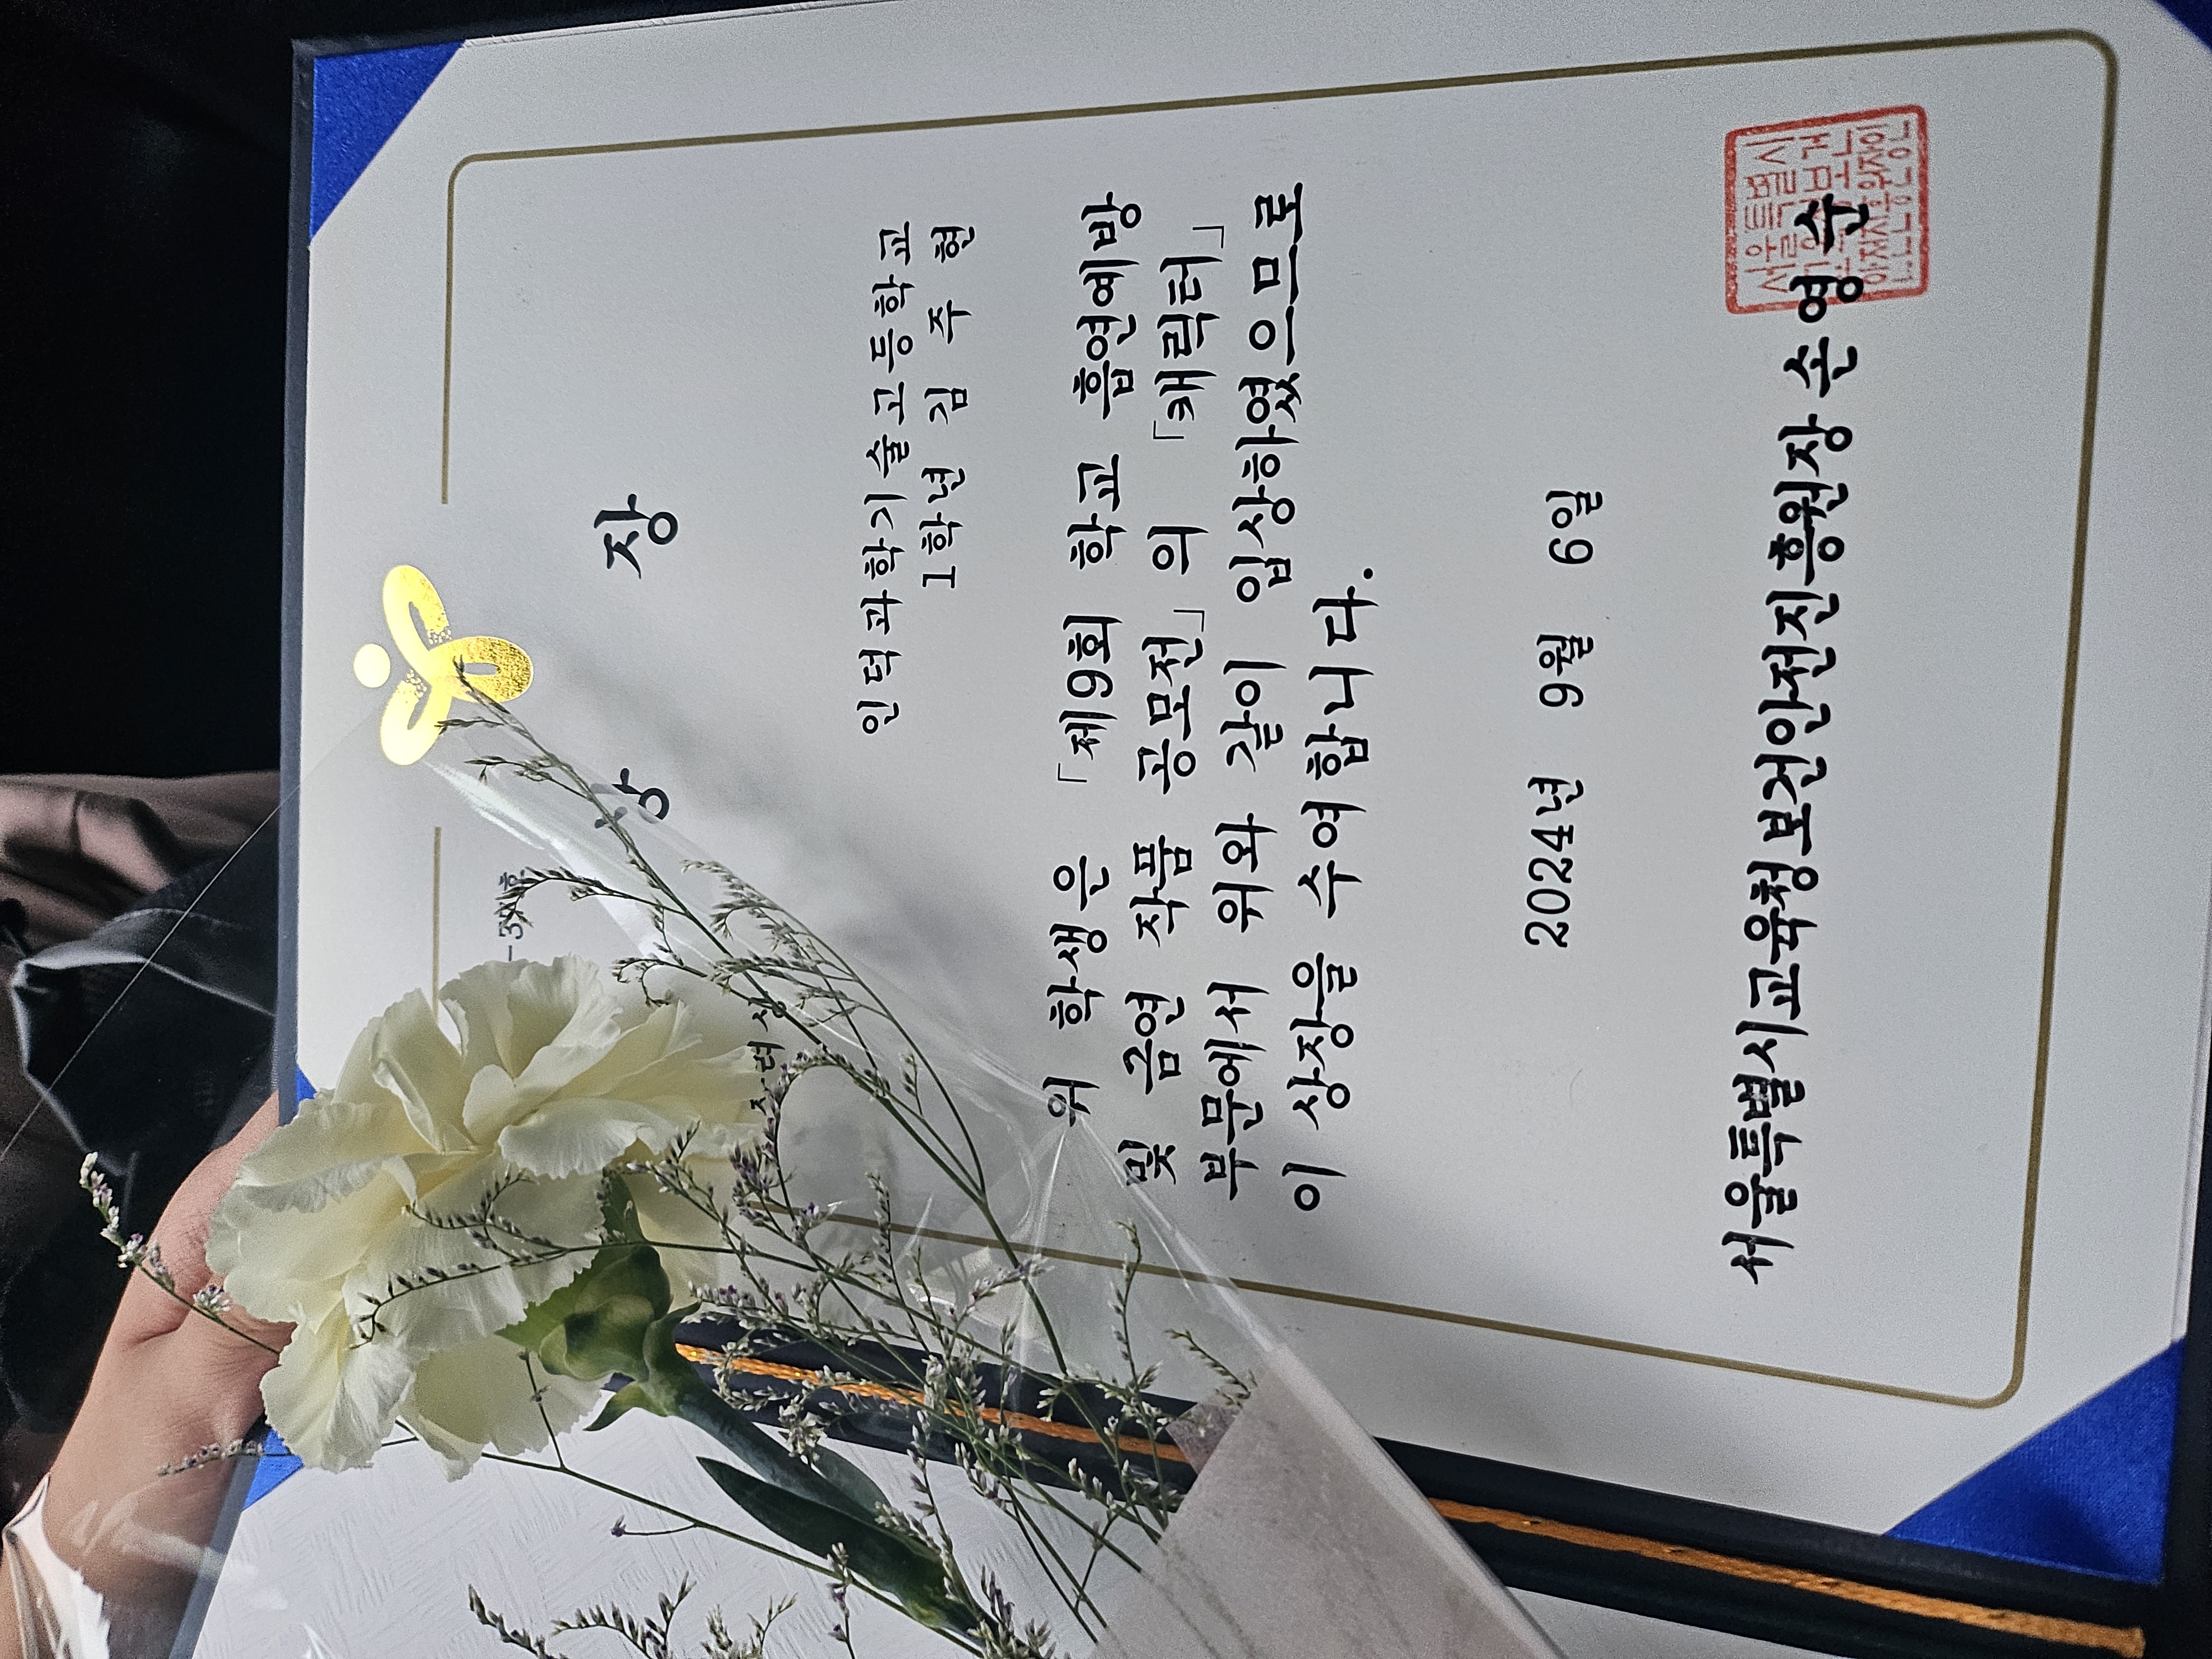 상 장
장려상
인덕과학기술고등학교
1학년 김 주 현
위 학생은 「제9회 학교 흡연예방
및 금연 작품 공모전」의 「캐릭터」
부문에서 위와 같이 입상하였으므로
이 상장을 수여합니다.
2024년 9월 6일
서울특별시교육청보건안전진흥원장 손영순